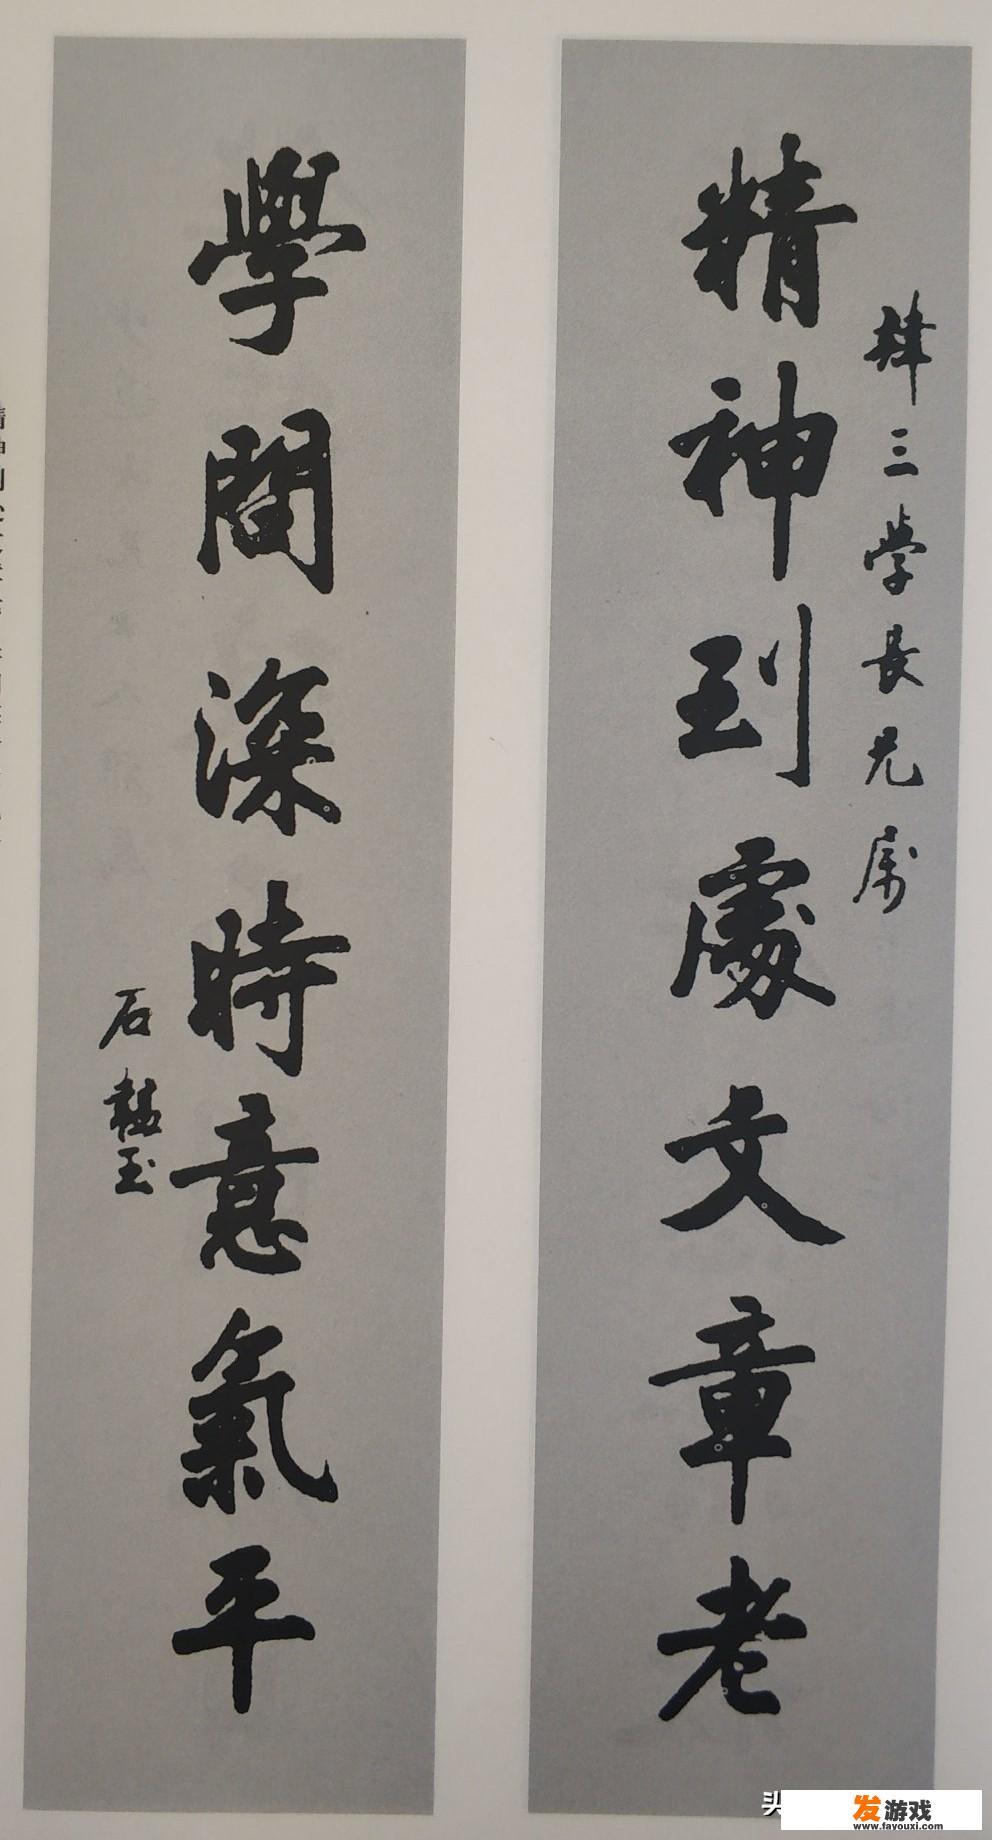 三学長兄属
精神到處文章老
學問深時意氣平
石韞玉
头
发游戏
www.fayouxi.com